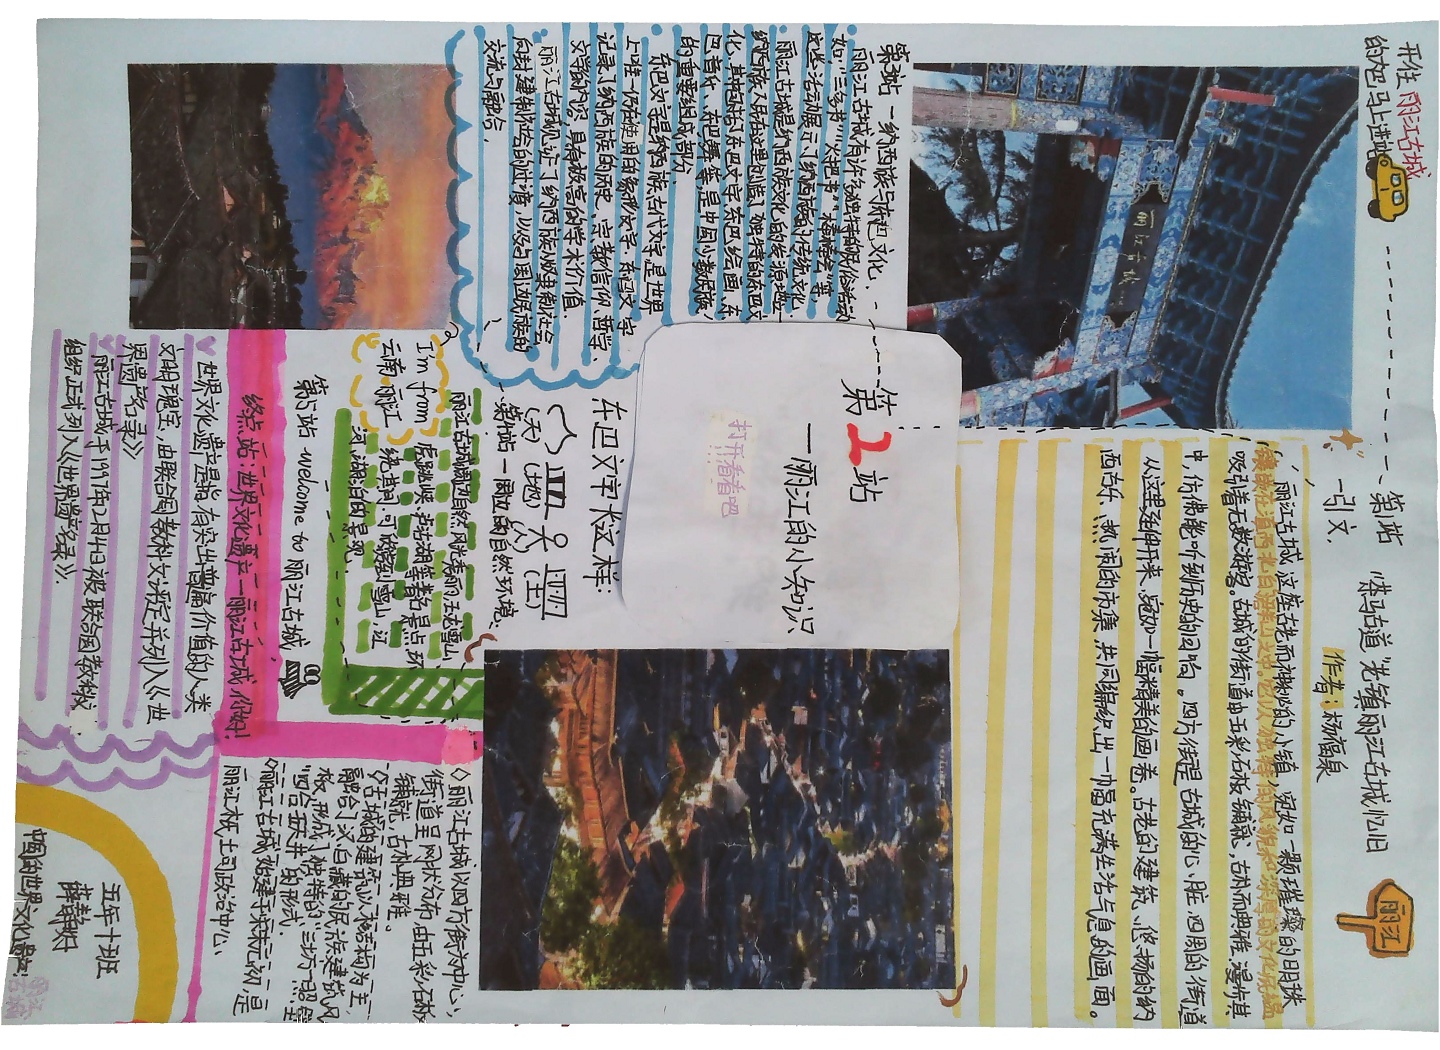 开往丽江古城
的大巴马上进站
第1站
一引文
丽江
"茶马古道"老镇丽江古城忆旧
作者:杨福泉
丽江古城,这座古老而神秘的小镇,宛如一颗璀璨的明珠
镶嵌在滇西北白雪山之中,它以独特的风貌和深厚的文化底蕴
吸引着无数游客。古城的街道由五彩石板铺就,古朴而典雅,漫步其
中,仿佛能听到历史的回响。四方街是古城的心脏,四周的街道
从这里延伸开来,宛如一幅精美的画卷。古老的建筑、悠扬的纳
西古乐、热闹的市集,共同编织出一幅充满生活气息的画面。
丽江古城
第2站
一丽江的小知识
打开看看吧
!!!
第3站一纳西族与东巴文化
丽江古城有许多独特的民俗活动
如"三多节""火把节""棒棒会"等
这些活动展示了纳西族的传统文化
丽江古城是纳西族文化的发源地之一
纳西族人民在这里创造了独特的东巴文
化,其中包括了东巴文字、东巴绘画、东
巴音乐、东巴舞等,是中国少数民族
的重要组成部分。
东巴文字是纳西族古代文字,是世界
上唯一仍在使用的象形文字,东巴文字
记录了纳西族的历史、宗教信仰、哲学、
文学等内容,具有极高的学术价值
丽江古城见证了纳西族从奴隶制社会
向封建制社会的过渡,以及与周边民族的
交流与融合。
东巴文字长这样:
(天) (地) (人) (土)
第4站一周边的自然环境
丽江古城周边自然风光秀丽,玉龙雪山、
虎跳峡、泸沽湖等著名景点环
绕其间,可欣赏到雪山、江
河、湖泊的景观
I'm from
云南·丽江
第5站 welcome to 丽江古城
◇丽江古城以四方街为中心,
街道呈网状分布,由五彩石板
铺就,古朴典雅。
◇古城的建筑以木结构为主,
融合了汉、白、藏的民族建筑风
格,形成了独特的"三坊一照壁
""四合五天井"的形式。
◇丽江古城始建于宋末元初,是
丽江木氏土司政治中心
终点站:世界文化遗产一丽江古城,你好!
世界文化遗产是指,有突出普遍价值的人类
文明瑰宝,由联合国教科文评定并列入《世
界遗产名录》
丽江古城于1997年12月4日被联合国教科文
组织正式列入《世界遗产名录》。
五年十班
薛静好
中国的世界文化遗产:
丽江
古城